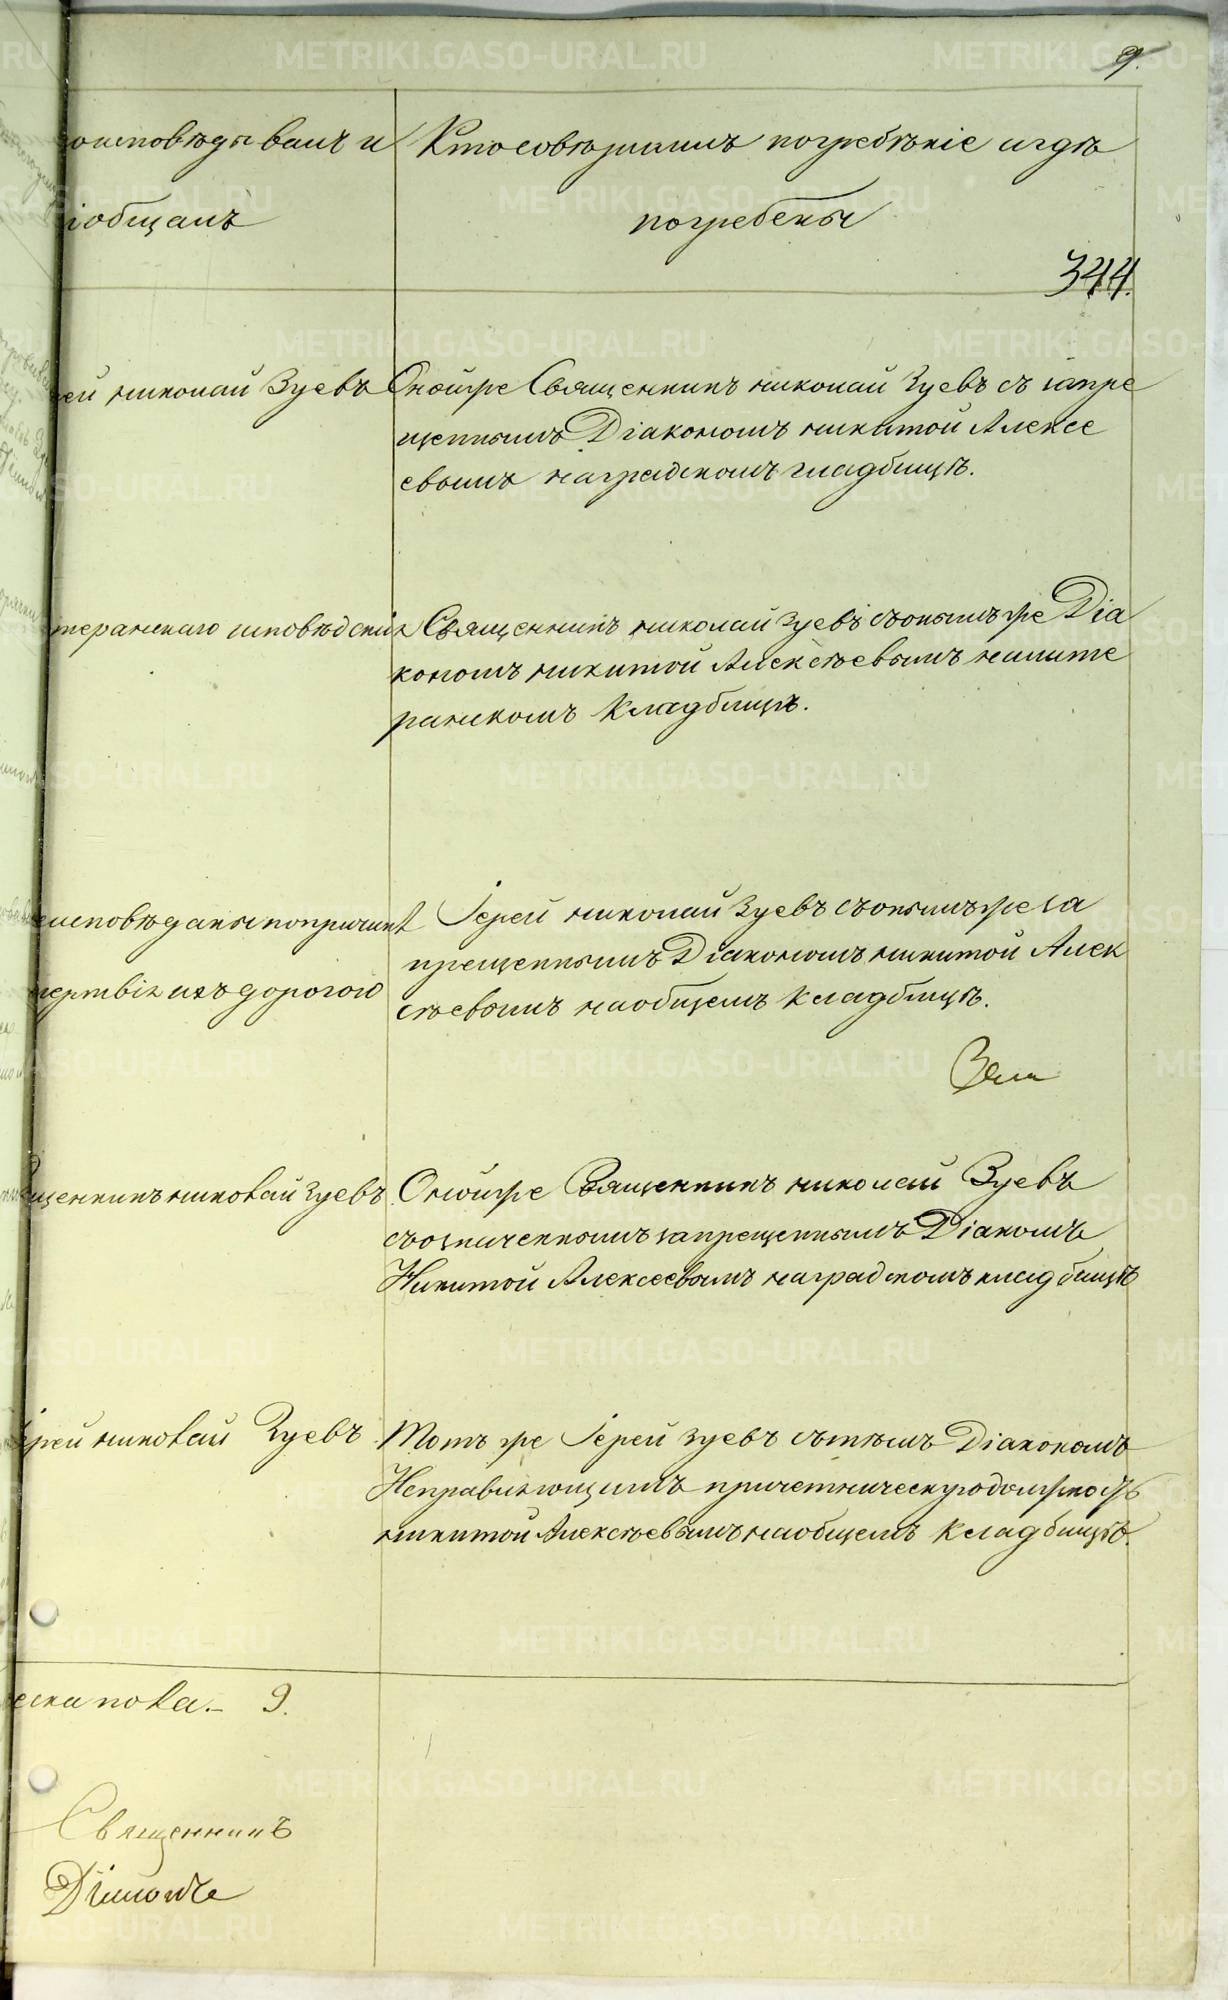 9.
оисповѣдывалъ и
Кто совершалъ погребѣніе и гдѣ
іобщалъ
погребены
344.
ей николай Зуевъ
Онойже Священникъ николай Зуевъ съ запре
щеннымъ Діакономъ никитой Алексе
евымъ на градскомъ гладбищѣ.
теранскаго исповѣданія
Священникъ николай Зуевъ съ онымъ же Діа
кономъ никитой Алексѣевымъ на люте
ранскомъ кладбищѣ.
еисповѣданы по причинѣ
Іерей николай Зуевъ съ онымъ же за
прещеннымъ Діакономъ никитой Алек
ихъ дорогою
сѣевымъ на общемъ кладбищѣ.
щенникъ николай Зуевъ
Онойже Священникъ николай Зуевъ
съ означеннымъ запрещеннымъ Діакомъ
Никитой Алексеевымъ на градскомъ кладбищѣ
ерей николай Зуевъ
Тотъ же Іерей Зуевъ съ тѣмъ Діакономъ
Неправляющимъ причетническую должность
никитой Алексѣевымъ на общемъ кладбищѣ.
еска пола. 9.
Священникъ